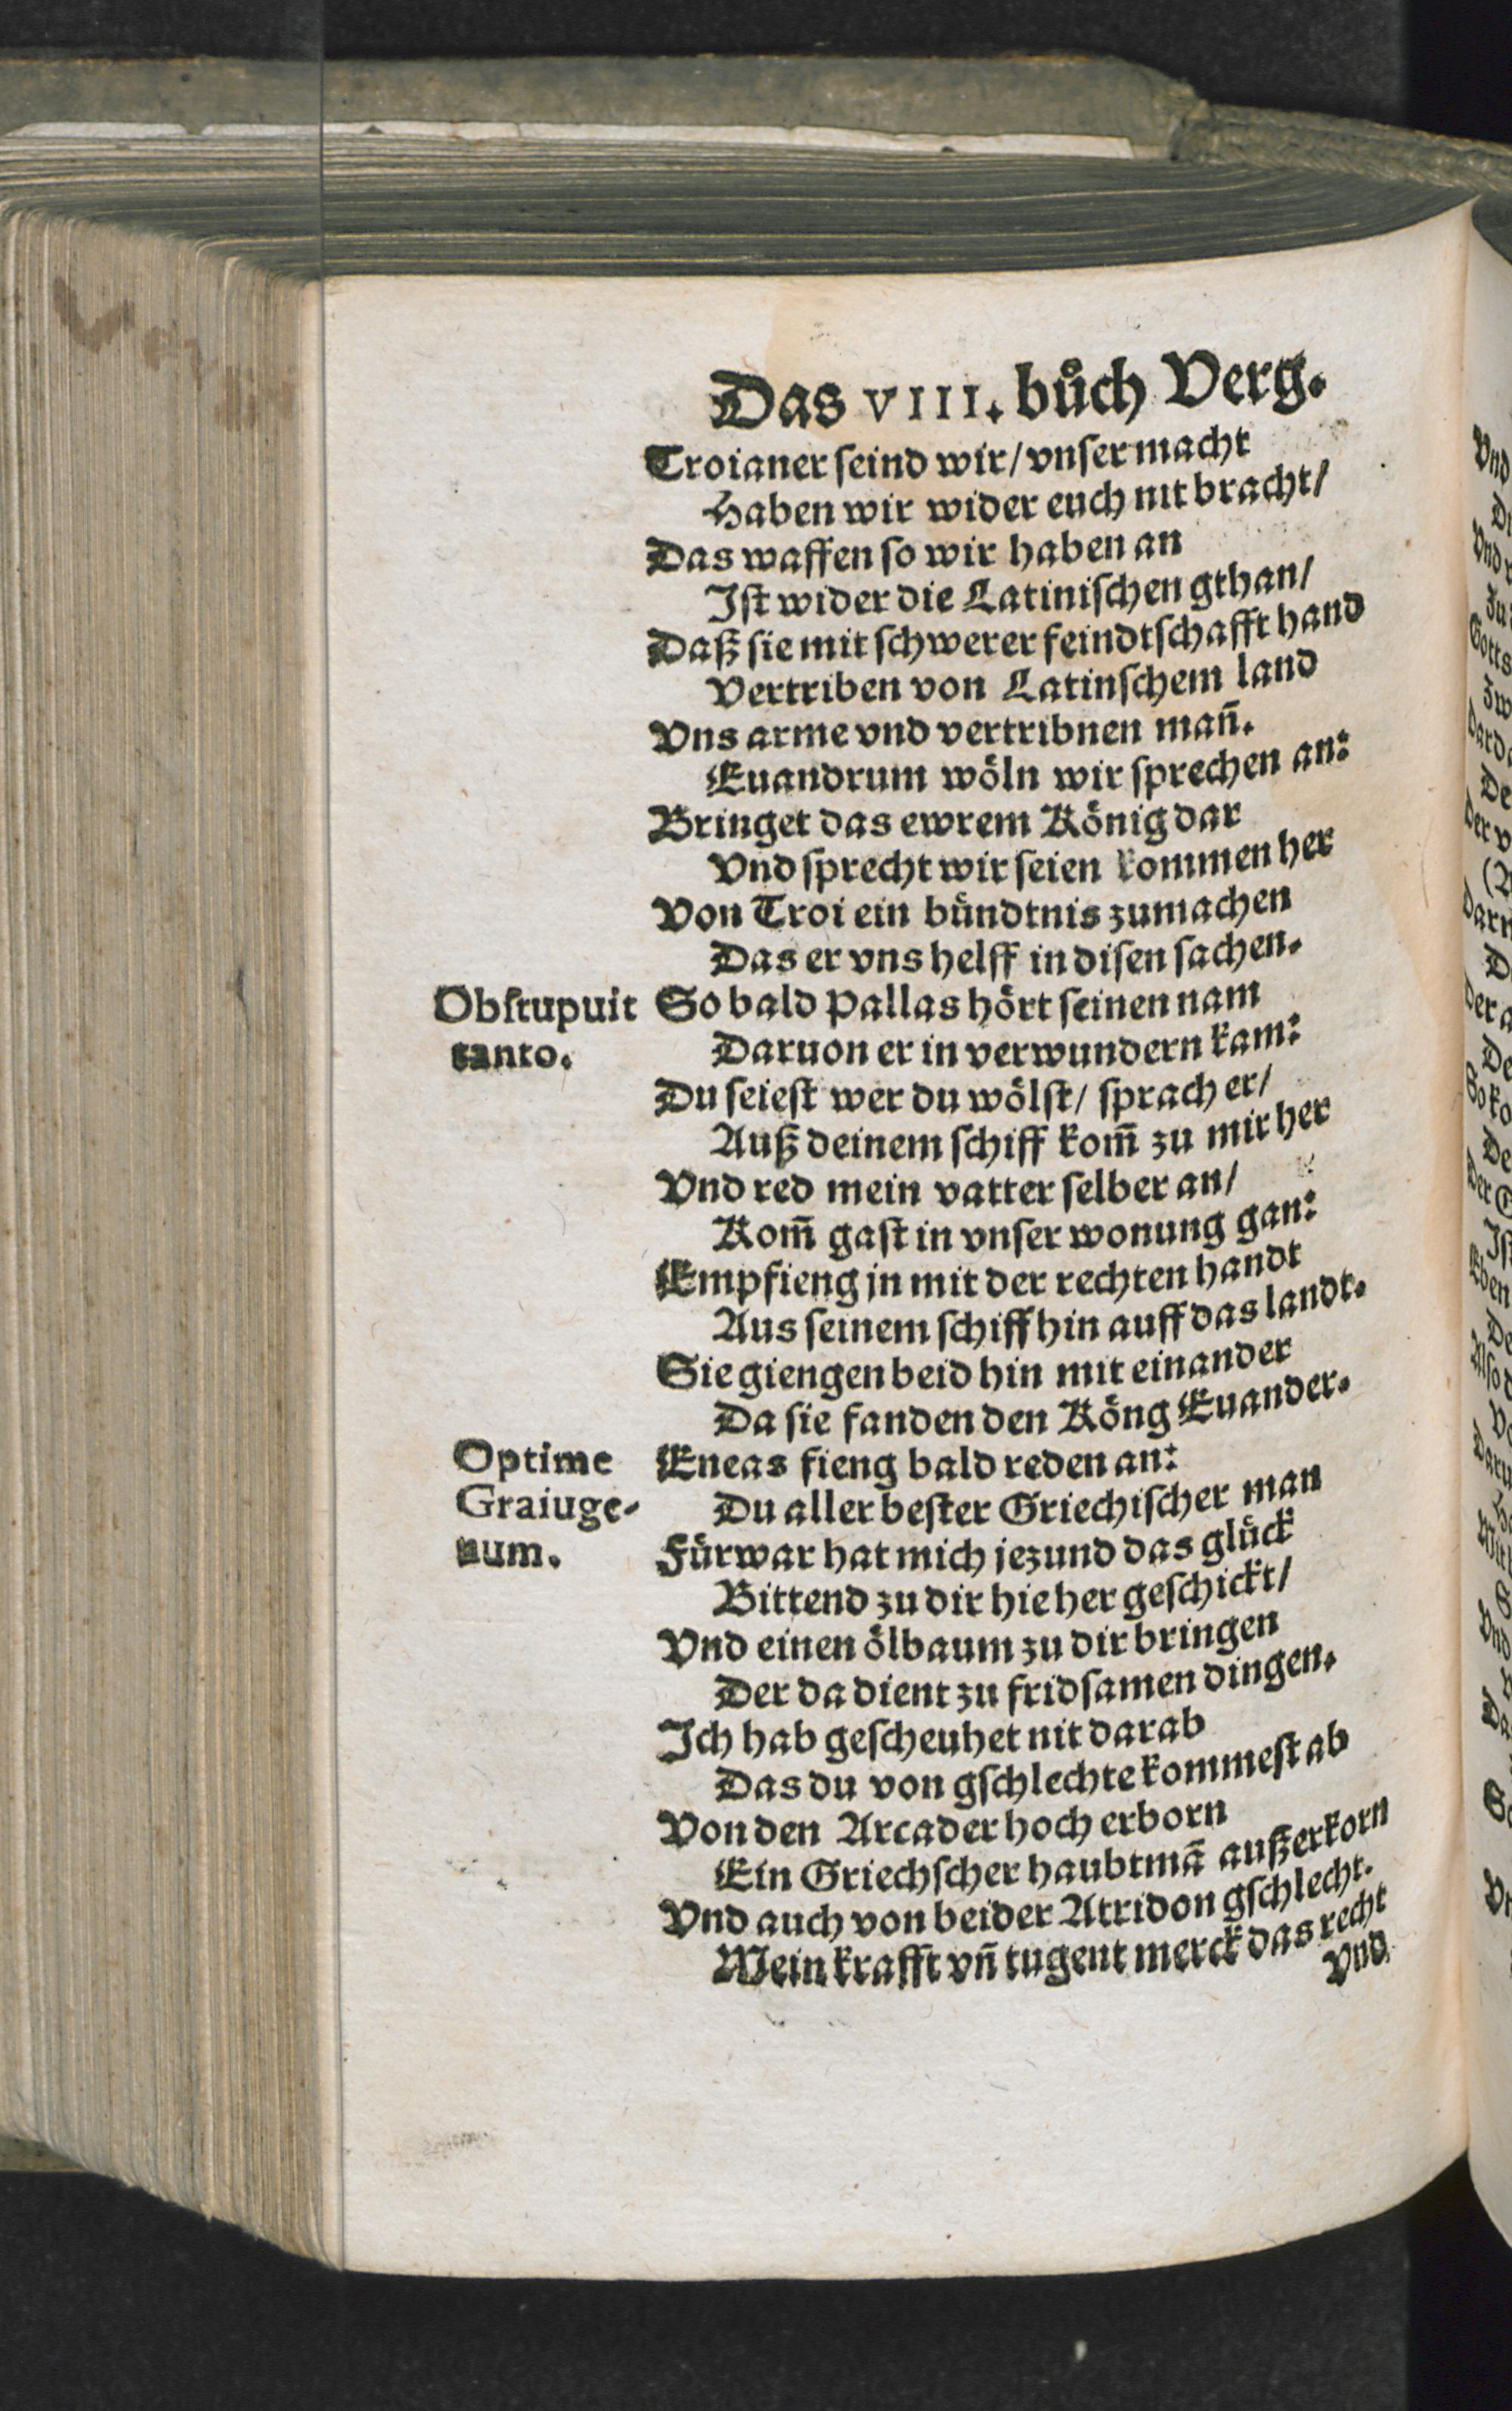 Das VIII. bůch Verg.
Troianer seind wir/ vnser macht
Haben wir wider euch nit bracht/
Das waffen so wir haben an
Ist wider die Latinischen gthan/
Daß sie mit schwerer feindtschafft hand
Vertriben von Latinschem land
Vns arme vnd vertribnen mañ.
Euandrum wöln wir sprechen an:
Bringet das ewrem König dar
Vnd sprecht wir seien kommen her
Von Troi ein bündtnis zumachen
Das er vns helff in disen sachen.
Obstupuit So bald Pallas hört seinen nam
tanto. Daruon er in verwundern kam:
Du seiest wer du wölst/ sprach er/
Auß deinem schiff kom̃ zu mir her
Vnd red mein vatter selber an/
Kom̃ gast in vnser wonung gan:
Empfieng jn mit der rechten handt
Aus seinem schiff hin auff das landt.
Sie giengen beid hin mit einander
Da sie fanden den Köng Euander.
Optime Eneas fieng bald reden an:
Graiuge- Du aller bester Griechischer man
num. Fürwar hat mich jezund das glück
Bittend zu dir hie her geschickt/
Vnd einen ölbaum zu dir bringen
Der da dient zu fridsamen dingen.
Ich hab gescheuhet nit darab
Das du von gschlechte kommest ab
Von den Arcader hoch erborn
Ein Griechscher haubtmã außerkorn
Vnd auch von beider Atridon gschlecht.
Mein krafft vñ tugent merck das recht
Vnd